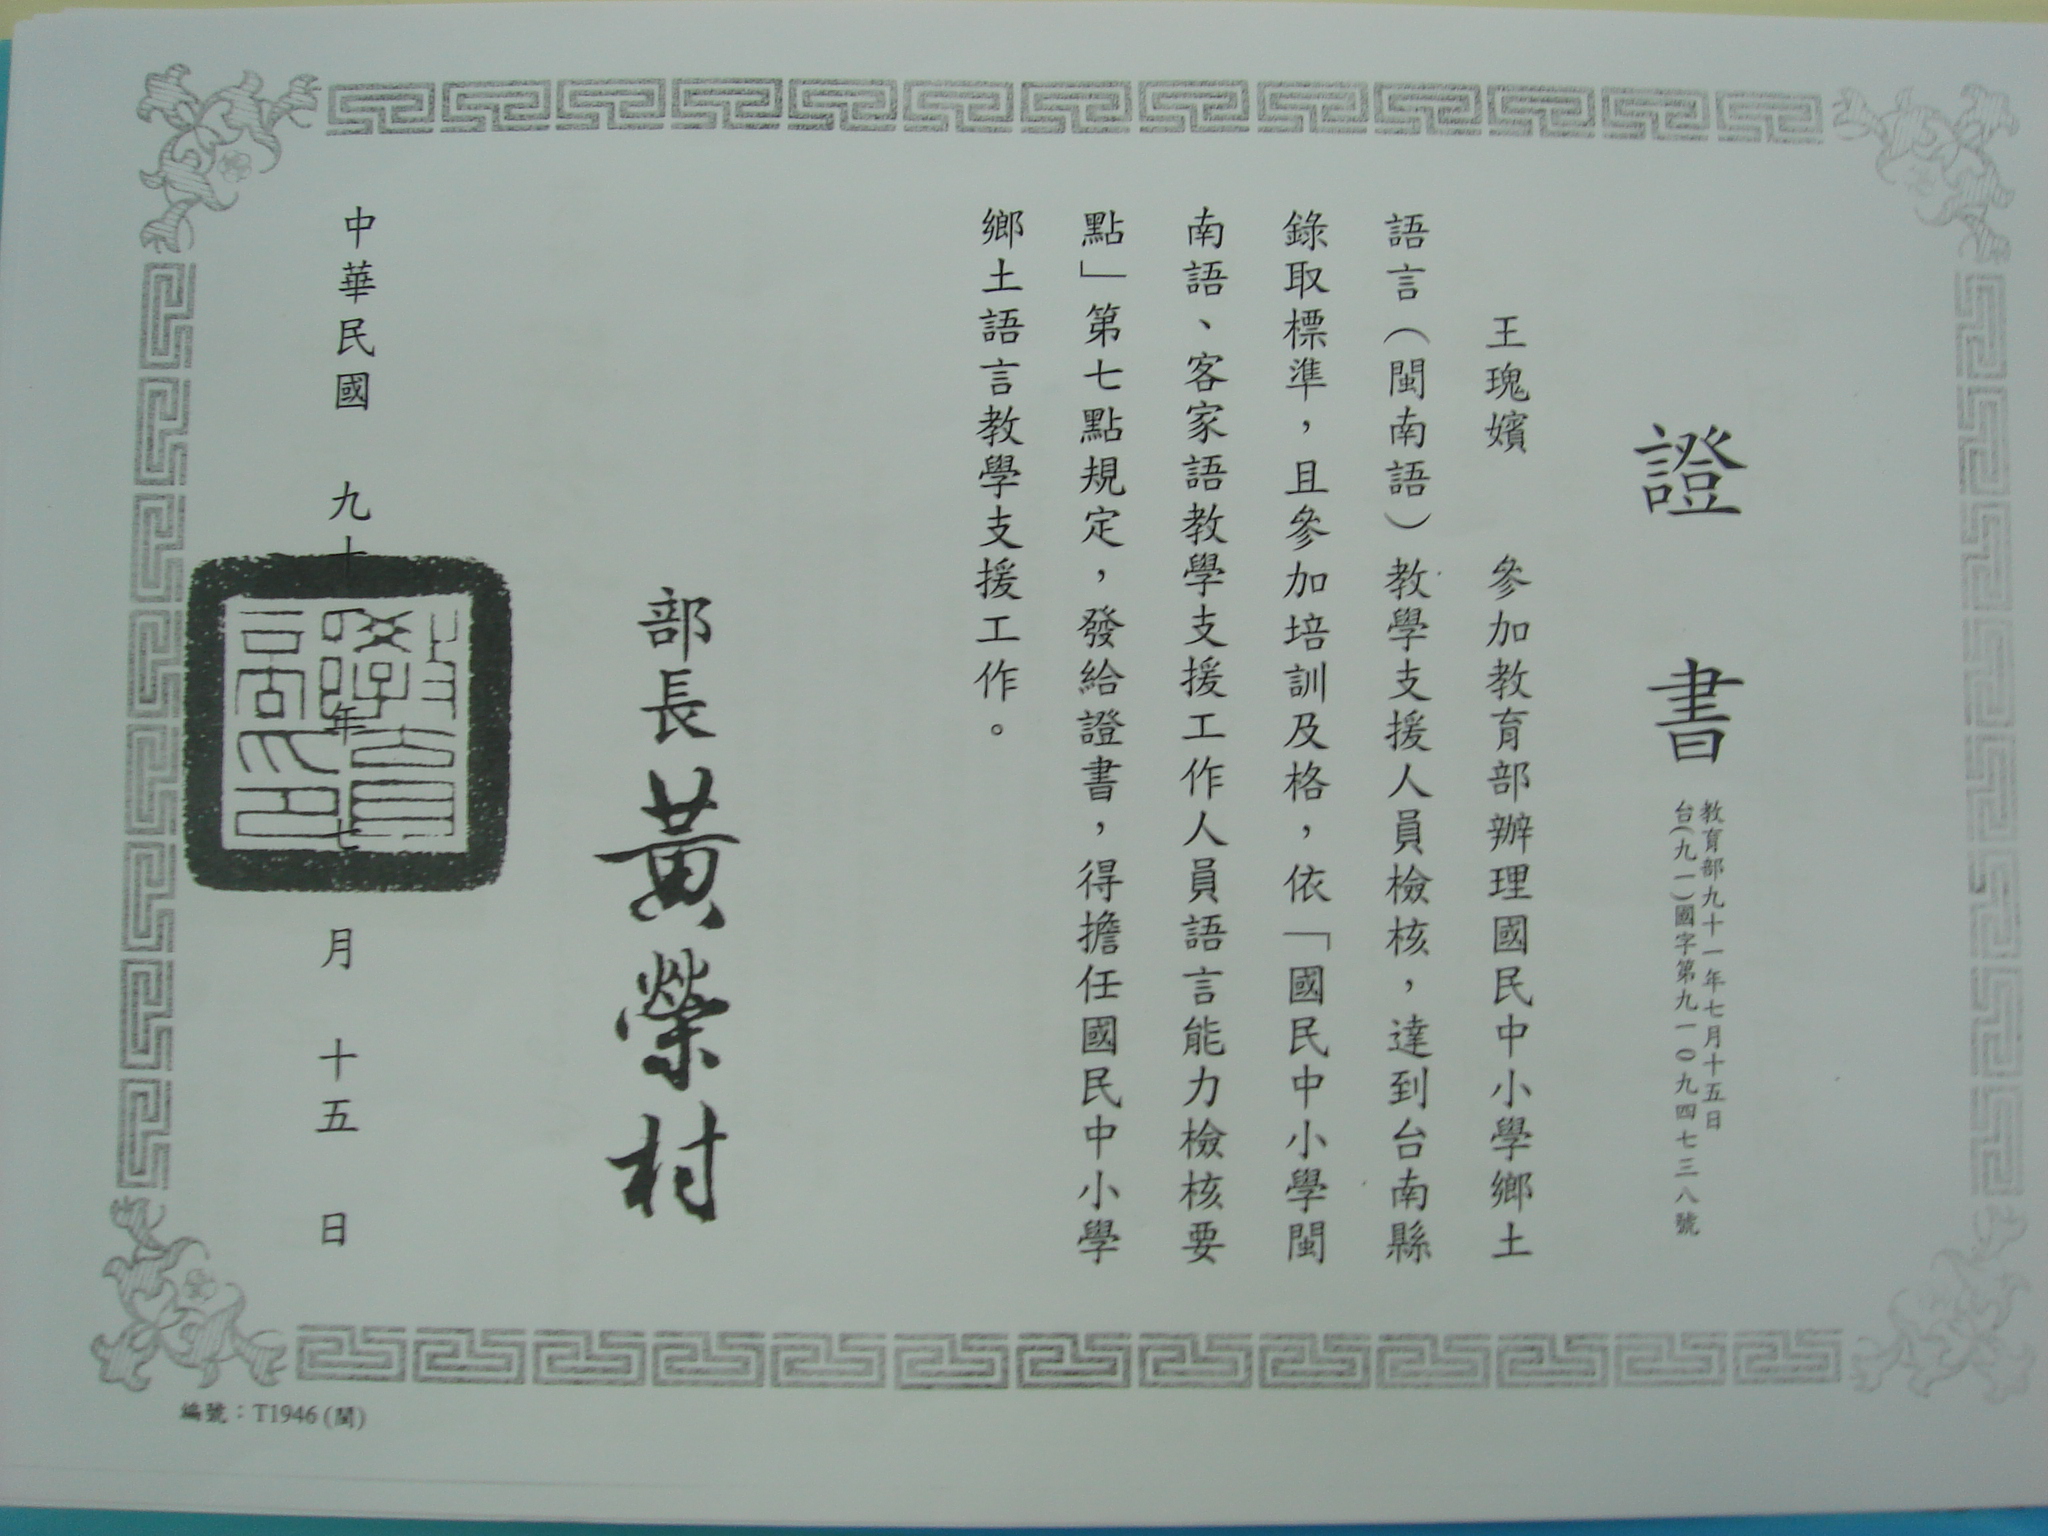 證書
教育部九十一年七月十五日
台(九一)國字第九一〇九四七三八號
王瑰嬪 參加教育部辦理國民中小學鄉土
語言(閩南語)教學支援人員檢核,達到台南縣
錄取標準,且參加培訓及格,依「國民中小學閩
南語、客家語教學支援工作人員語言能力檢核要
點」第七點規定,發給證書,得擔任國民中小學
鄉土語言教學支援工作。
部長 黃榮村
中華民國 九十 年 七 月 十五 日
編號:T1946(閩)